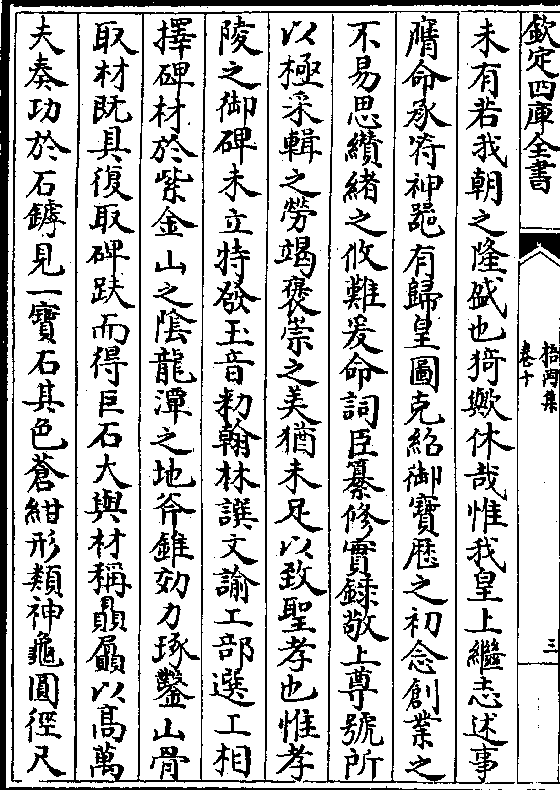 欽定四庫全書
梧岡集
卷十
三
未有若我朝之隆盛也猗歟休哉惟我皇上繼志述事
膺命承符神器有歸皇圖克紹御寶歷之初念創業之
不易思纘緒之攸難爰命詞臣纂修實録敬上尊號所
以極采輯之勞竭褒崇之美猶未足以致聖孝也惟孝
陵之御碑未立特發玉音勅翰林譔文諭工部選工相
擇碑材於紫金山之陰龍潭之地斧錐効力琢鑿山骨
取材既具復取碑趺而得巨石大與材稱贔屭以髙萬
夫奏功於石罅見一寳石其色蒼紺形類神龜圓徑尺